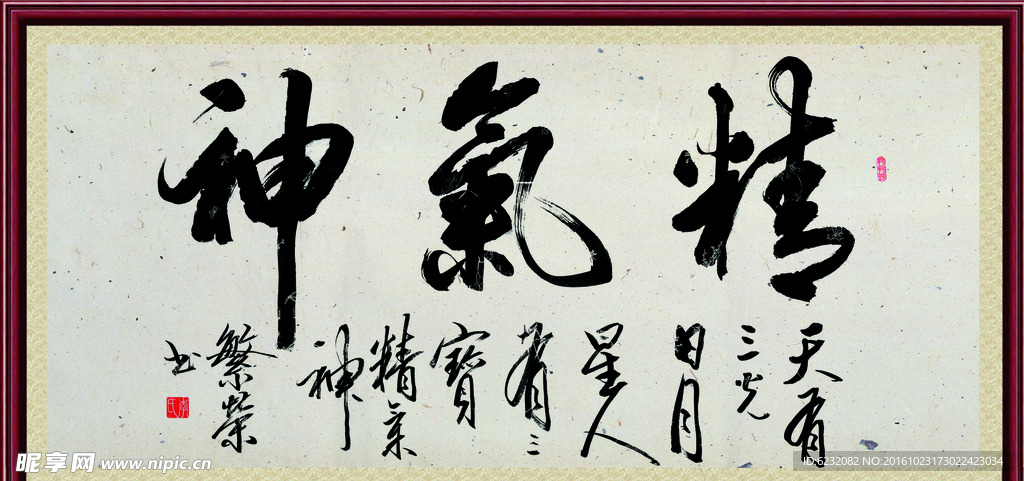 精氣神
天有
三光
日月
星人
有三
寶
精氣
神
繁榮
书
李氏
昵享网 www.nipic.cn
ID:6232082 NO:20161023173022423034